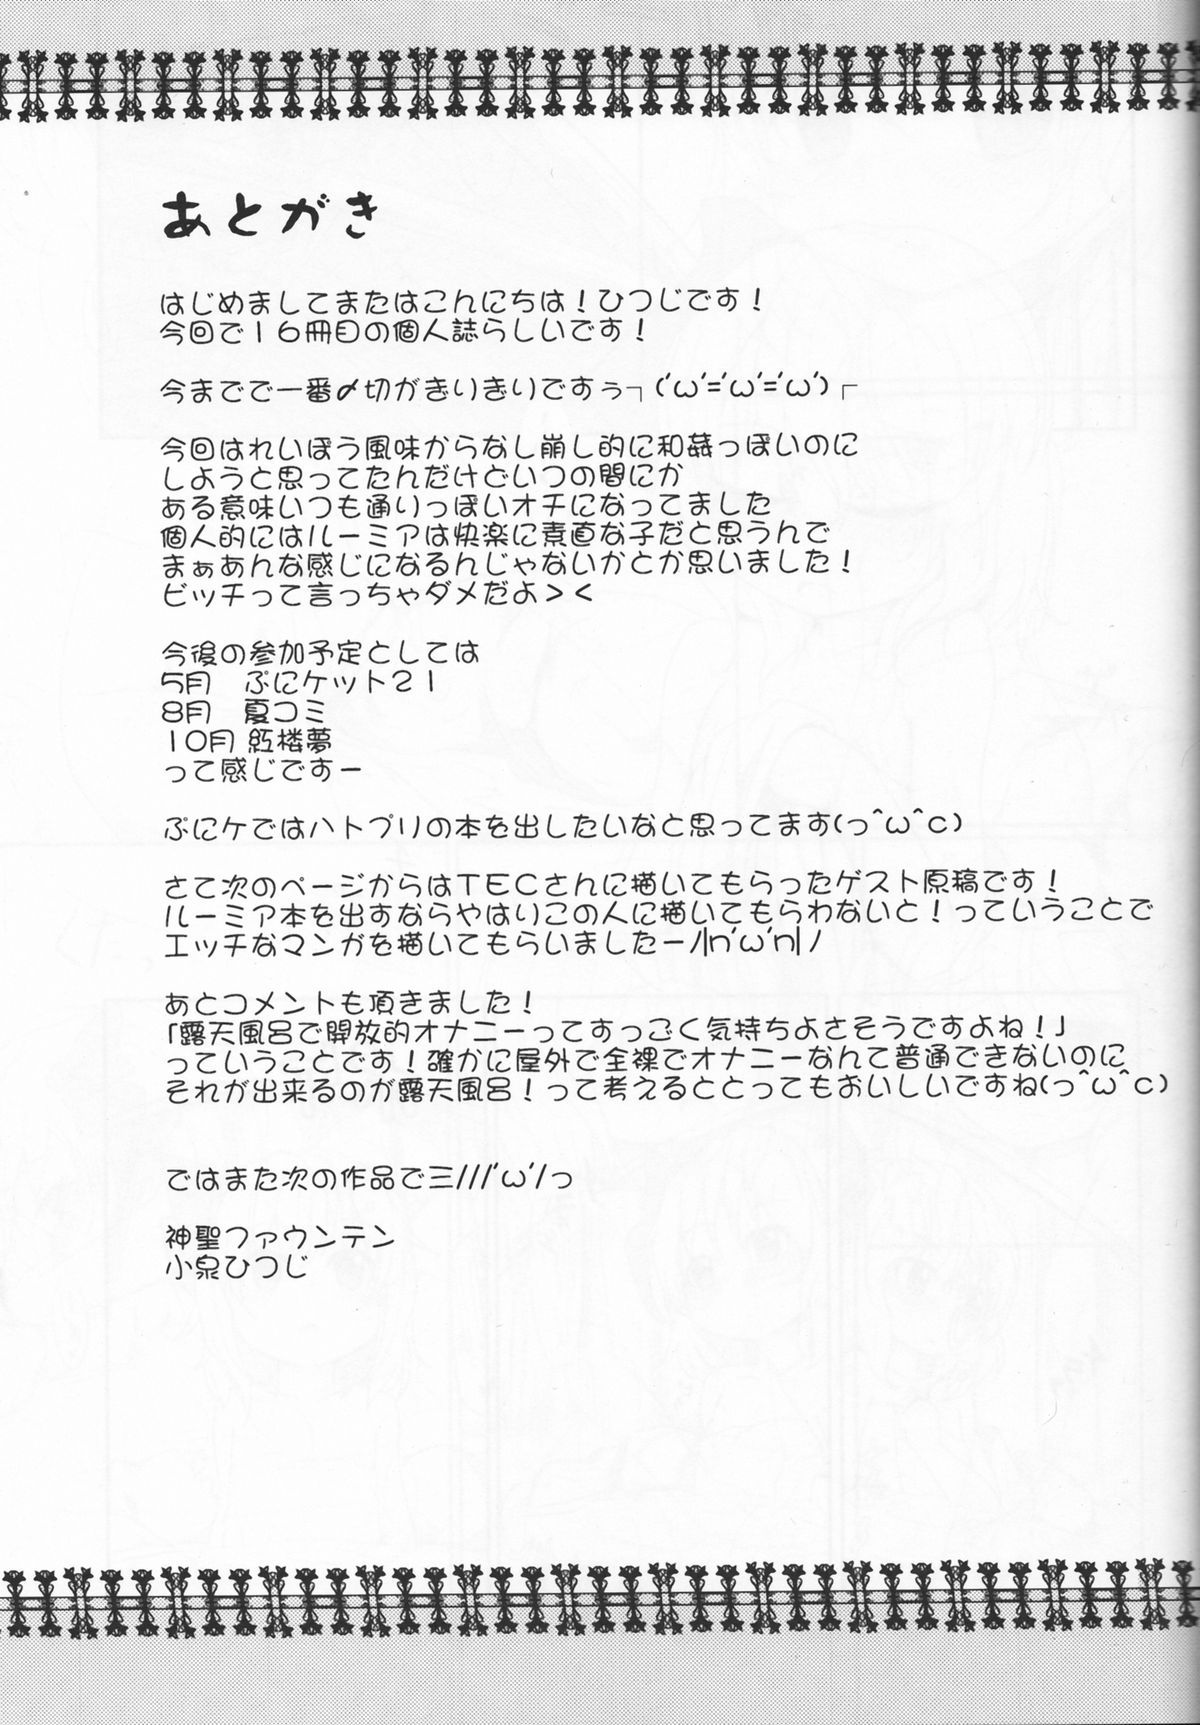 あとがき
はじめましてまたはこんにちは！ひつじです！
今回で１６冊目の個人誌らしいです！
今までで一番〆切がぎりぎりですぅ┐('ω'='ω'='ω')┌
今回はれいぽう風味からなし崩し的に和姦っぽいのに
しようと思ってたんだけどいつの間にか
ある意味いつも通りっぽいオチになってました
個人的にはルーミアは快楽に素直な子だと思うんで
まぁあんな感じになるんじゃないかとか思いました！
ビッチって言っちゃダメだよ＞＜
今後の参加予定としては
５月　ぷにケット２１
８月　夏コミ
１０月 紅楼夢
って感じですー
ぷにケではハトプリの本を出したいなと思ってます(っ^ω^c)
さて次のページからはＴＥＣさんに描いてもらったゲスト原稿です！
ルーミア本を出すならやはりこの人に描いてもらわないと！っていうことで
エッチなマンガを描いてもらいましたーﾉ|n'ω'n|ﾉ
あとコメントも頂きました！
「露天風呂で開放的オナニーってすっごく気持ちよさそうですよね！」
っていうことです！確かに屋外で全裸でオナニーなんて普通できないのに
それが出来るのが露天風呂！って考えるととってもおいしいですね(っ^ω^c)
ではまた次の作品で三///'ω'/っ
神聖ファウンテン
小泉ひつじ